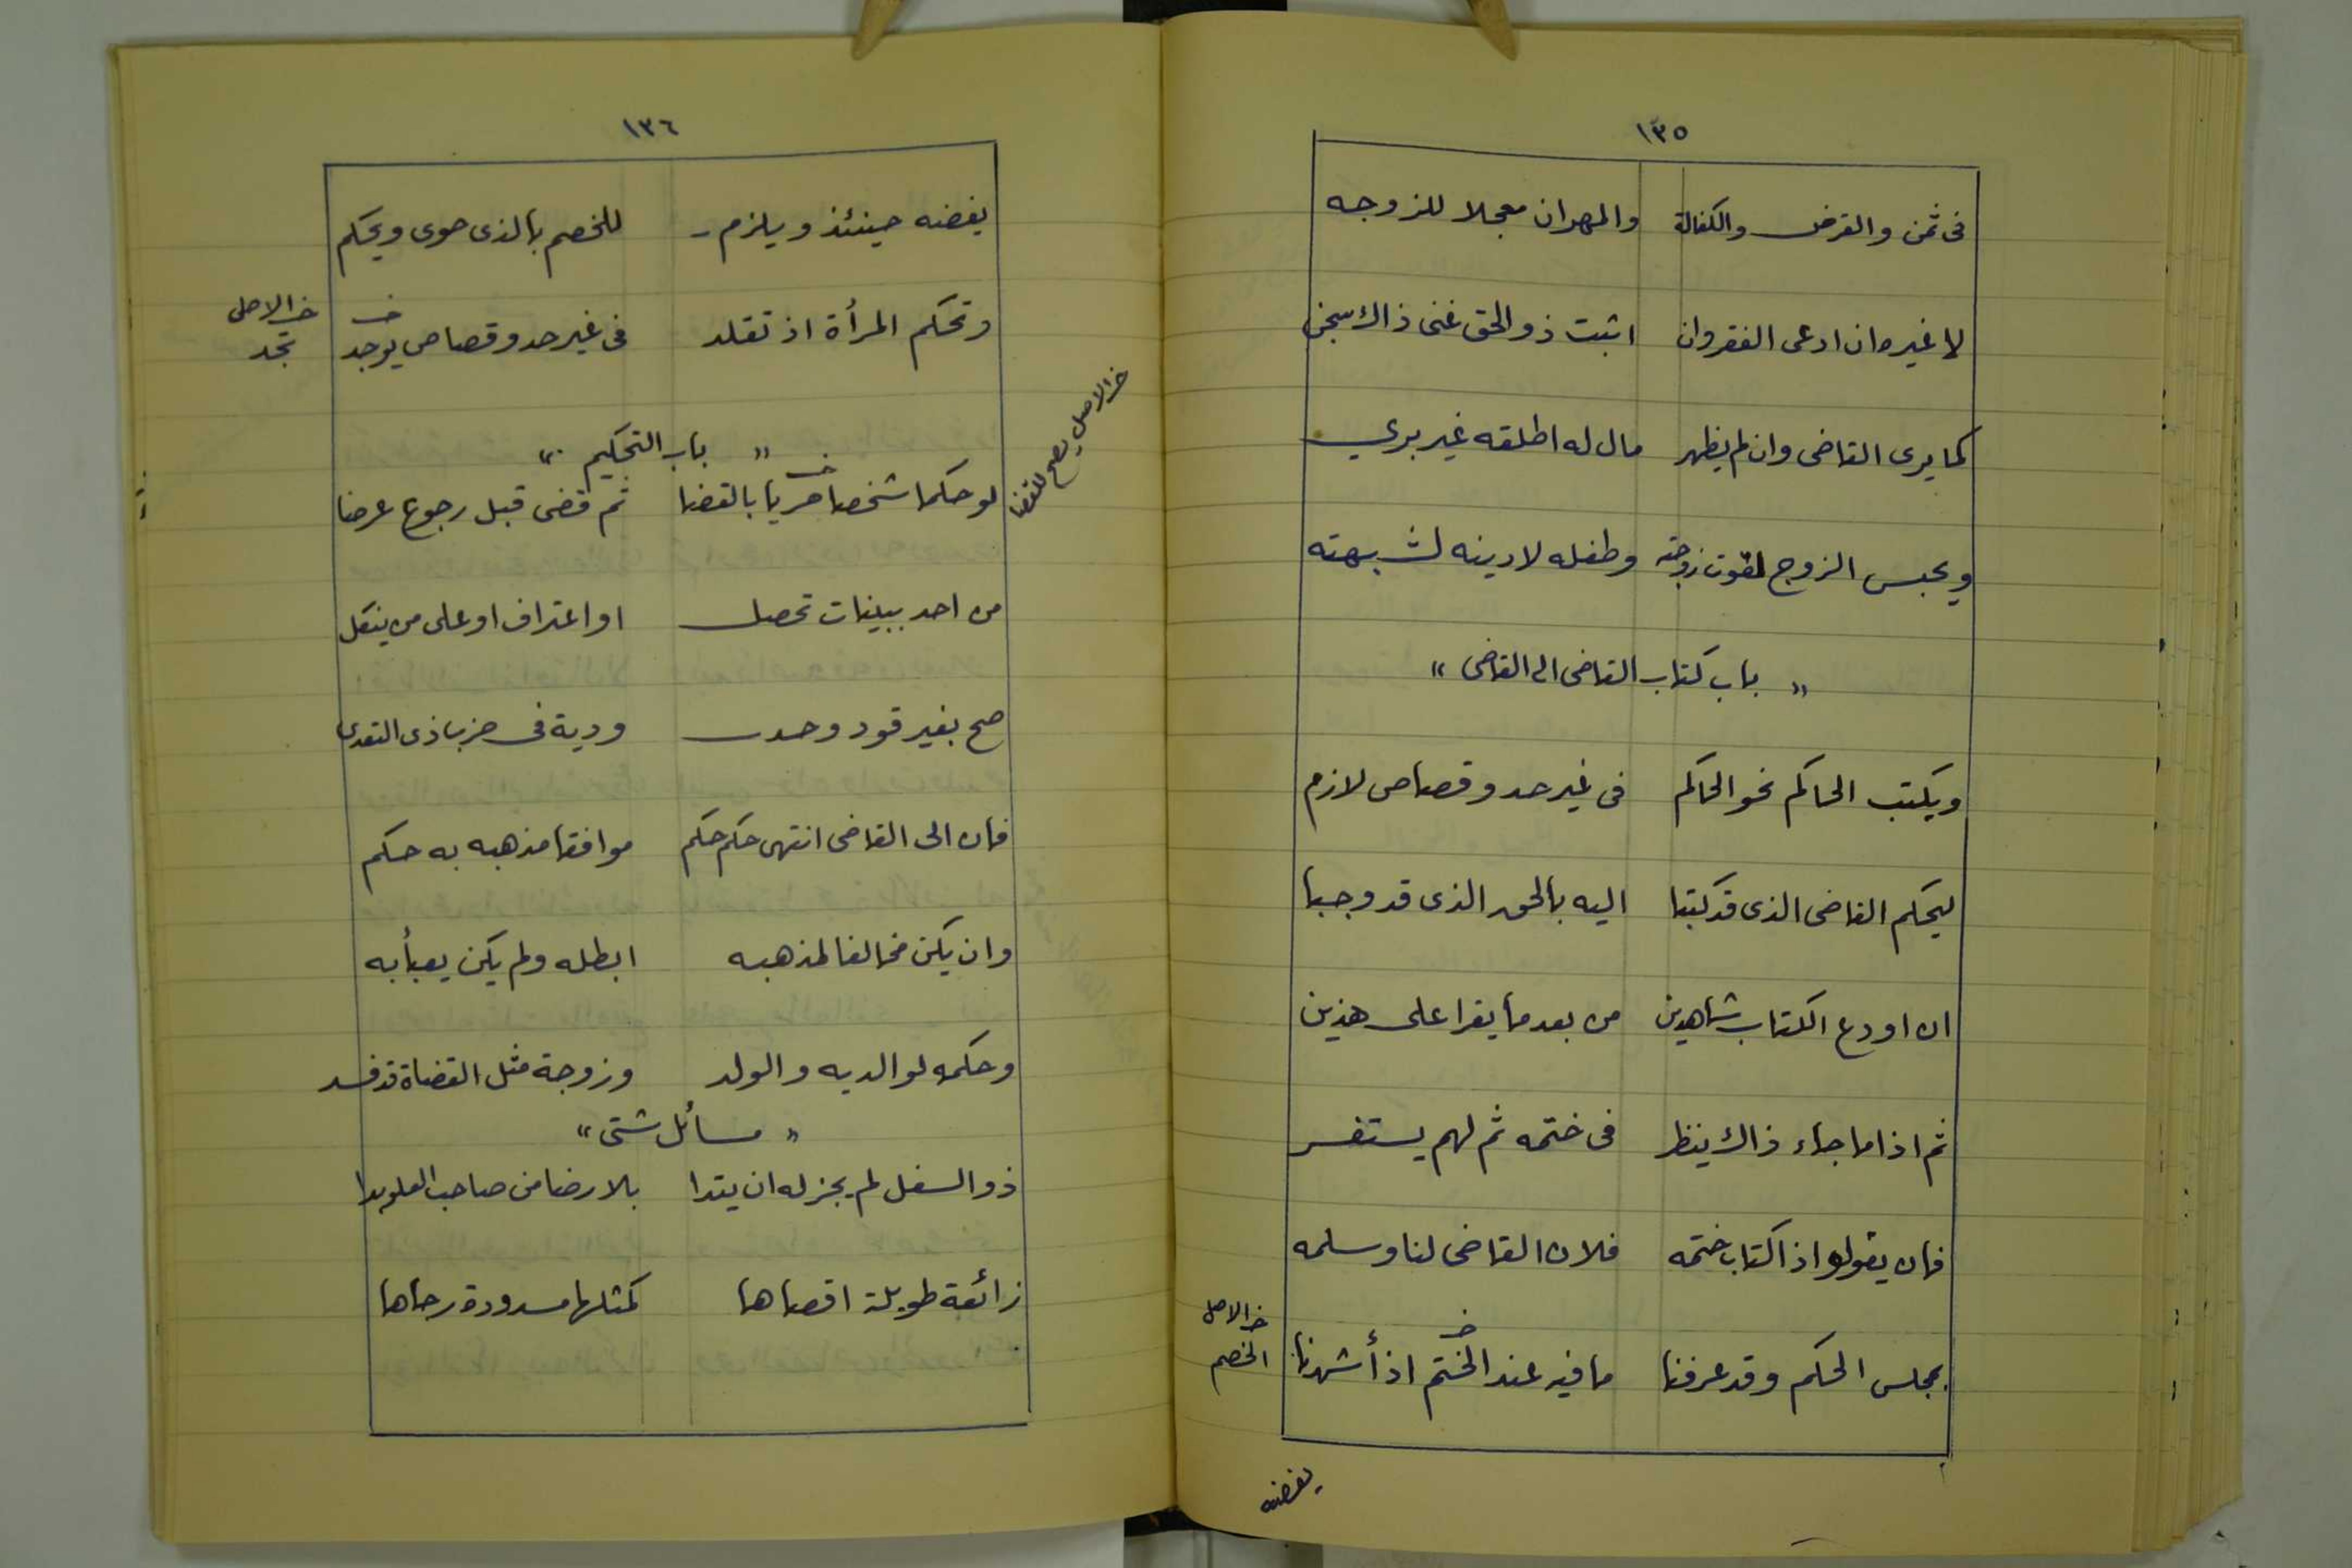 ١٣٥
فى ثمن والقرض والكفالة والمهر ان معجلا للزوجه
لا غيره ان ادعى الفقر وان اثبت ذو الحق غنى ذاك سجن
كما يرى القاضى وان لم يظهر مال له اطلقه غير برى
ويحبس الزوج لقوت زوجته وطفله لا دينه لشبهته
" باب كتاب القاضى الى القاضى "
ويكتب الحاكم نحو الحاكم فى غير حد وقصاص لازم
ليحكم القاضى الذى قد كتبا اليه بالحق الذى قد وجبا
ان اودع الكتاب شاهدين من بعد ما يقرا على هذين
ثم اذا ما جاء ذاك ينظر فى ختمه ثم لهم يستفسر
فان يقولوا ذا كتاب ختمه فلان القاضى لنا وسلمه
خ الاصل
بمجلس الحكم وقد عرفنا ما فيه عند الختم اذ أشهدنا
خ
الخصم
يفضنه
١٣٦
يفضنه حينئذ ويلزم للخصم بالذى حوى ويحكم
خ الاصل
وتحكم المرأة اذ تقلد فى غير حد وقصاص يوجد
خ
تجد
" باب التحكيم "
خ الاصل يصح للقضا
لو حكما شخصا حريا بالقضا ثم قضى قبل رجوع عرضا
خ
من احد ببينات تحصل او اعتراف او على من ينكل
صح بغير قود وحد ودية فى ضرب ذى التعدى
فان الى القاضى انتهى حكم حكم موافقا مذهبه به حكم
وان يكن مخالفا لمذهبه ابطله ولم يكن يعبأ به
وحكمه لوالديه والولد وزوجة مثل القضاة قد فسد
" مسائل شتى "
ذو السفل لم يجز له ان يتدا بلا رضا من صاحب العلو بدا
زائغة طويلة اقصاها كمثلها مسدودة رحاها